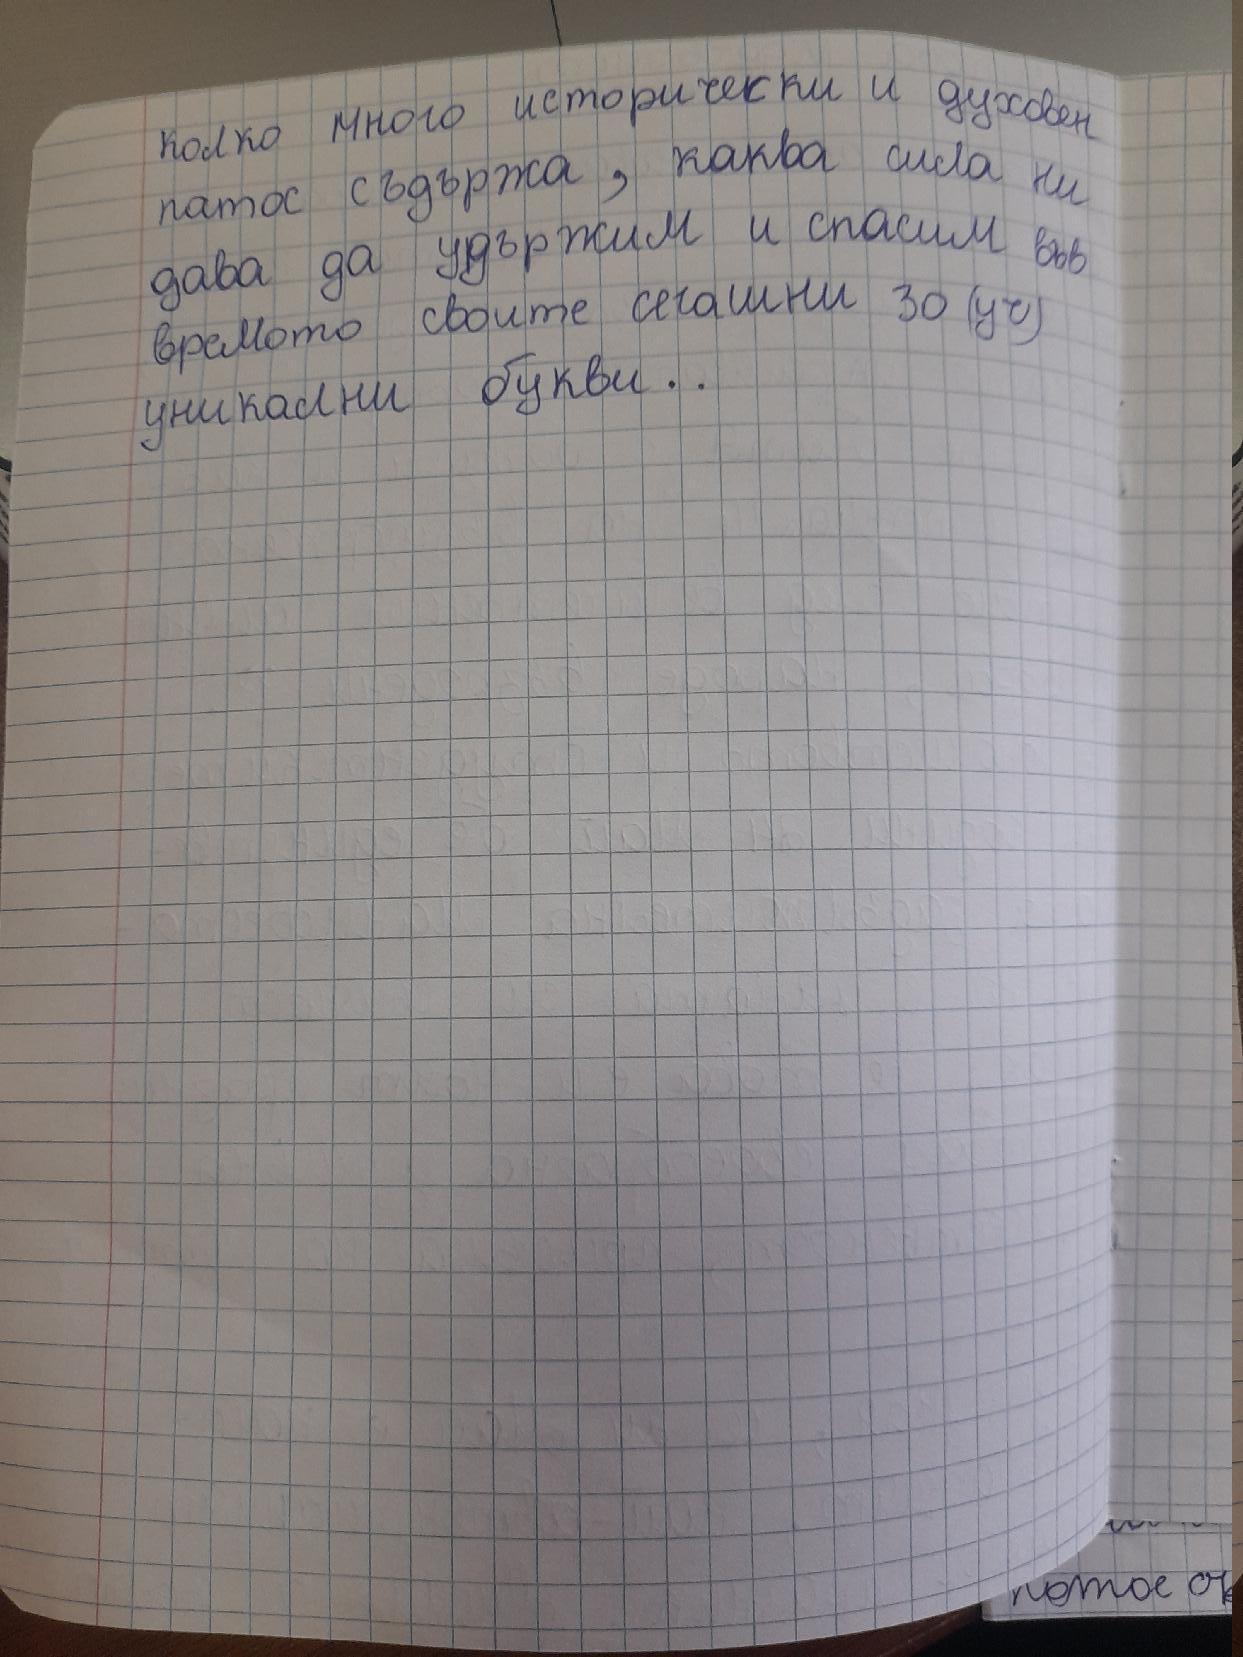 колко много исторически и духовен
патос съдържа, каква сила ни
дава да удържим и спасим във
времото своите сегашни 30 (уч)
уникални букви..